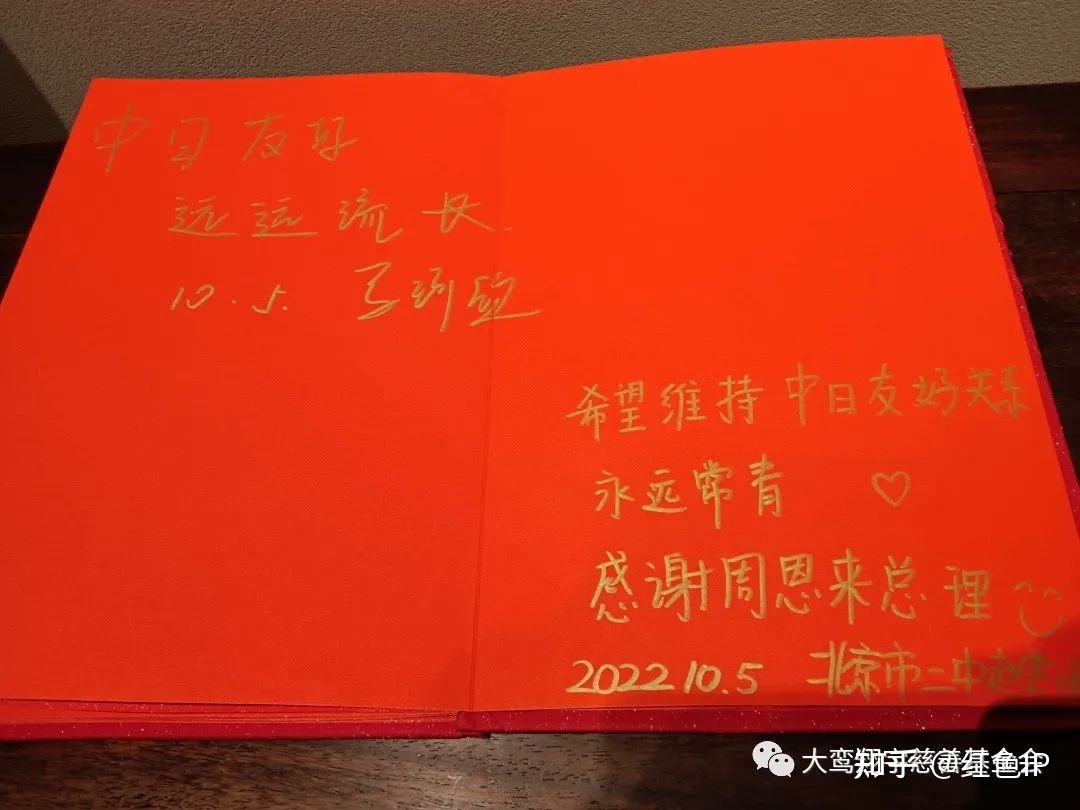 中日友好
远远流长.
10.5.
希望维持中日友好关系
永远常青 ♡
感谢周恩来总理
2022 10.5 北京市二中
大鸾翔宇慈善基金会
知乎 @红色IP